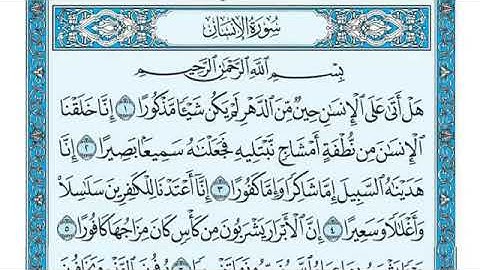 سُورَةُ الإِنسَانِ
بِسْمِ اللَّهِ الرَّحْمَٰنِ الرَّحِيمِ
هَلْ أَتَىٰ عَلَى الْإِنسَٰنِ حِينٌ مِّنَ الدَّهْرِ لَمْ يَكُن شَيْـًٔا مَّذْكُورًا ١ إِنَّا خَلَقْنَا
الْإِنسَٰنَ مِن نُّطْفَةٍ أَمْشَاجٍ نَّبْتَلِيهِ فَجَعَلْنَٰهُ سَمِيعًۢا بَصِيرًا ٢ إِنَّا
هَدَيْنَٰهُ السَّبِيلَ إِمَّا شَاكِرًا وَإِمَّا كَفُورًا ٣ إِنَّا أَعْتَدْنَا لِلْكَٰفِرِينَ سَلَٰسِلَا۟
وَأَغْلَٰلًا وَسَعِيرًا ٤ إِنَّ الْأَبْرَارَ يَشْرَبُونَ مِن كَأْسٍ كَانَ مِزَاجُهَا كَافُورًا ٥